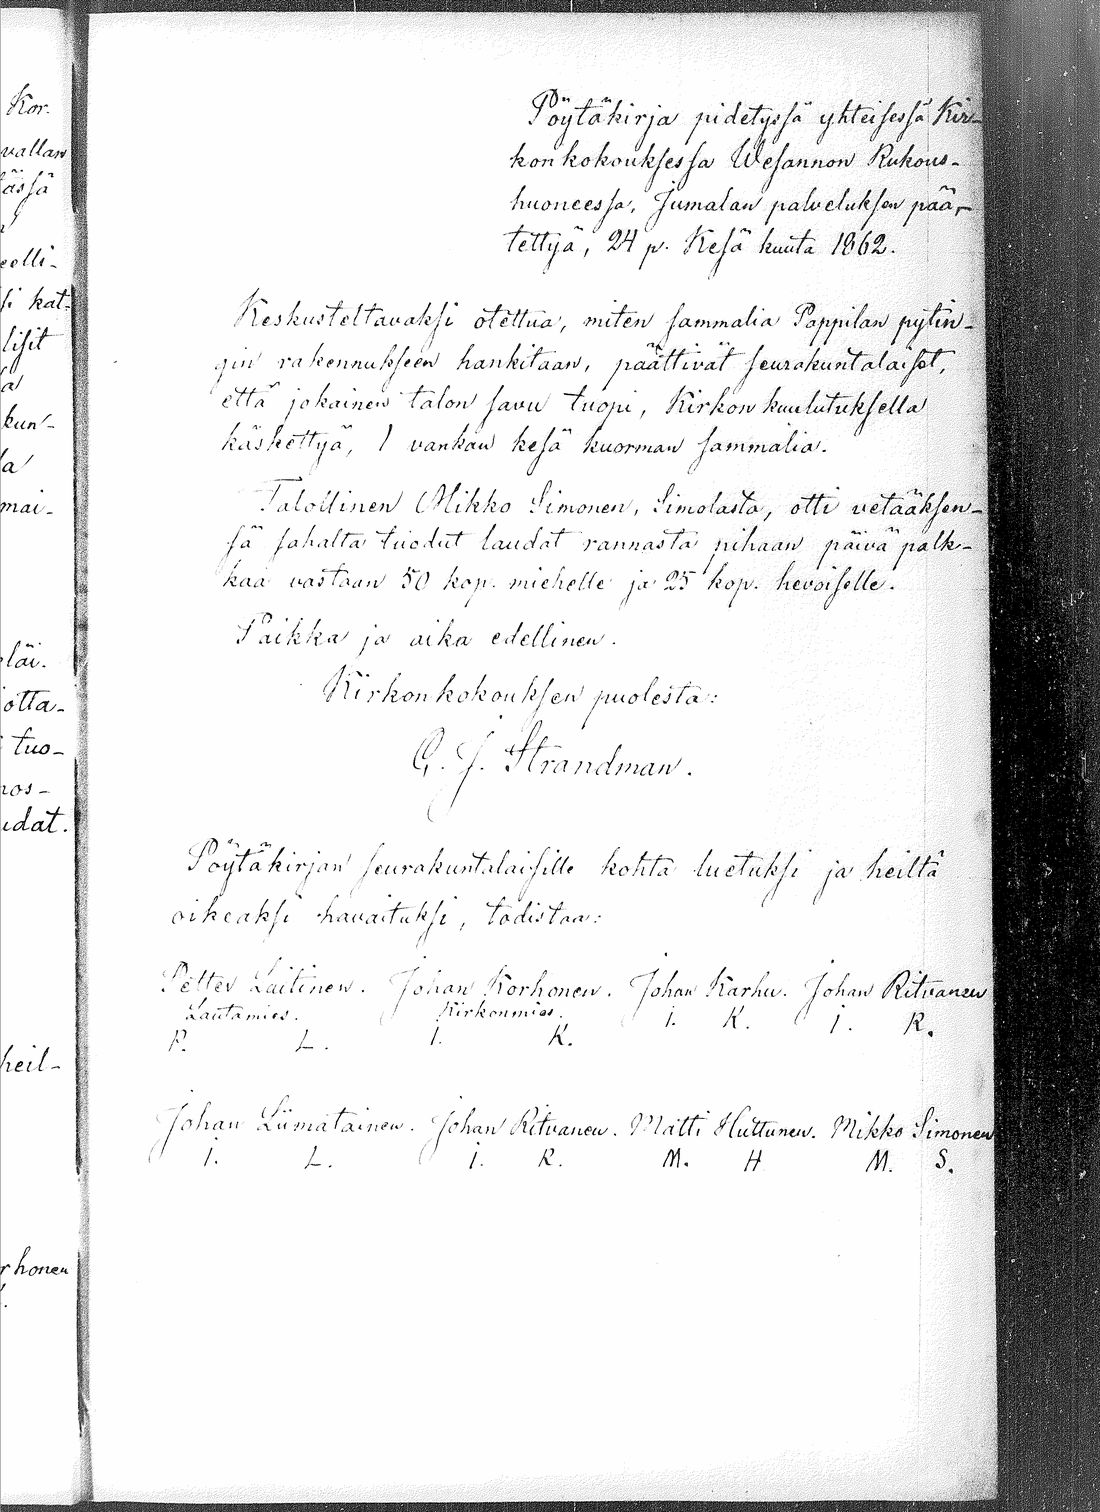 Kor.
vallan
ässä
eelli-
si kat-
lisit
a
kun-
la
mai-
läi.
otta-
tuo-
nos-
udat.
heil-
rhonen
Pöytäkirja pidetyssä yhteisessä Kir-
konkokouksessa Wesannon Rukous-
huoneessa, Jumalan palveluksen pää-
tettyä, 24 p. Kesä kuuta 1862.
Keskusteltavaksi otettua, miten sammalia Pappilan pytin-
gin rakennukseen hankitaan, päättivät seurakuntalaiset,
että jokainen talon savu tuopi, Kirkon kuulutuksella
käskettyä, 1 vankan kesä kuorman sammalia.
Talollinen Mikko Simonen, Simolasta, otti vetääksen-
sä sahalta tuodut laudat rannasta pihaan päivä palk-
kaa vastaan 50 kop. miehelle ja 25 kop. hevoiselle.
Paikka ja aika edellinen.
Kirkonkokouksen puolesta:
G. J. Strandman.
Pöytäkirjan seurakuntalaisille kohta luetuksi ja heiltä
oikeaksi havaituksi, todistaa:
Petter Laitinen. Johan Korhonen. Johan Karhu. Johan Ritvanen
Lautamies. Kirkonmies. I. K. I. R.
P. L. I. K.
Johan Liimatainen. Johan Ritvanen. Matti Huttunen. Mikko Simonen
I. L. I. R. M. H M. S.